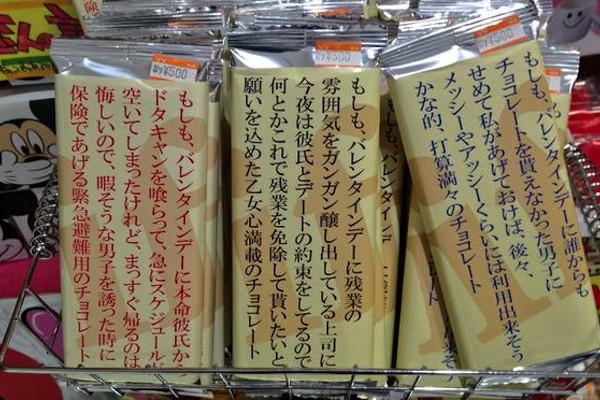 ¥500
もしも、バレンタインデーに本命彼氏から
ドタキャンを喰らって、急にスケジュールが
空いてしまったけれど、まっすぐ帰るのは
悔しいので、暇そうな男子を誘った時に
保険であげる緊急避難用のチョコレート
¥500
もしも、バレンタインデーに残業の
雰囲気をガンガン醸し出している上司に
今夜は彼氏とデートの約束をしてるので
何とかこれで残業を免除して貰いたいと
願いを込めた乙女心満載のチョコレート
¥500
もしも、バレンタインデーに誰からも
チョコレートを貰えなかった男子に
せめて私があげておけば、後々、
メッシーやアッシーくらいには利用出来そう
かな的、打算満々のチョコレート